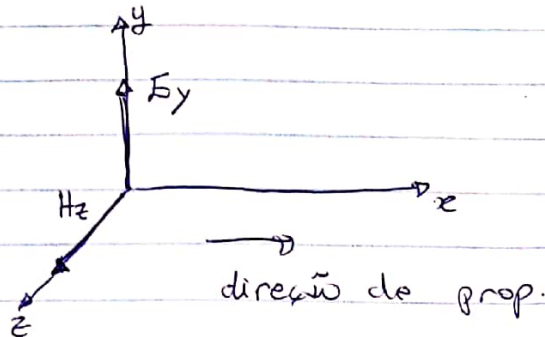 y
Ey
Hz
x
direção de prop.
z